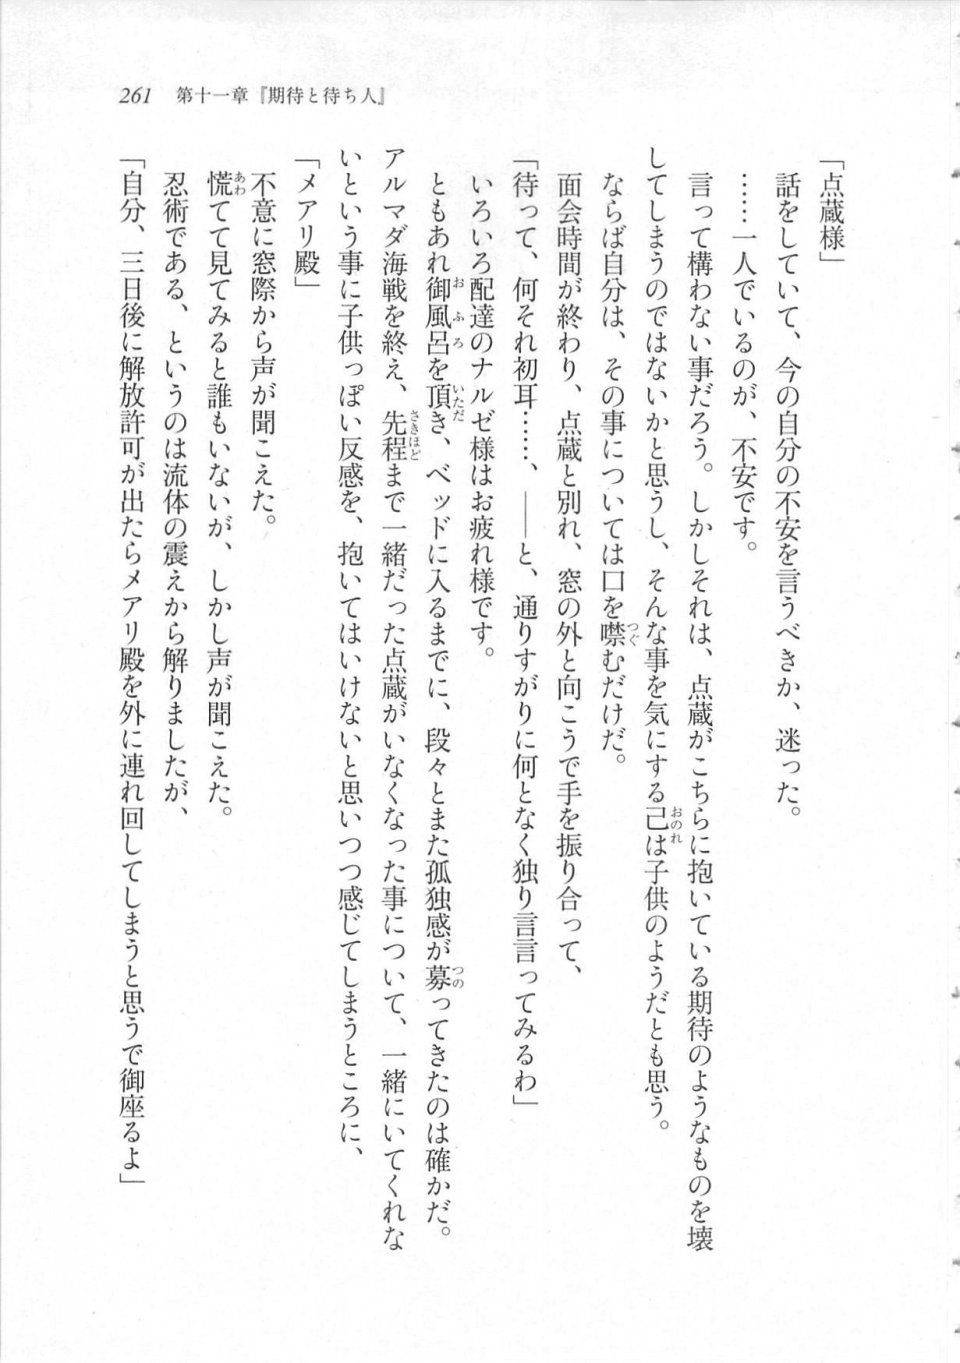 261 第十一章『期待と待ち人』
「点蔵様」
話をしていて、今の自分の不安を言うべきか、迷った。
……一人でいるのが、不安です。
言って構わない事だろう。しかしそれは、点蔵がこちらに抱いている期待のようなものを壊
してしまうのではないかと思うし、そんな事を気にする己は子供のようだとも思う。
ならば自分は、その事については口を噤むだけだ。
面会時間が終わり、点蔵と別れ、窓の外と向こうで手を振り合って、
「待って、何それ初耳……、――と、通りすがりに何となく独り言言ってみるわ」
いろいろ配達のナルゼ様はお疲れ様です。
ともあれ御風呂を頂き、ベッドに入るまでに、段々とまた孤独感が募ってきたのは確かだ。
アルマダ海戦を終え、先程まで一緒だった点蔵がいなくなった事について、一緒にいてくれな
いという事に子供っぽい反感を、抱いてはいけないと思いつつ感じてしまうところに、
「メアリ殿」
不意に窓際から声が聞こえた。
慌てて見てみると誰もいないが、しかし声が聞こえた。
忍術である、というのは流体の震えから解りましたが、
「自分、三日後に解放許可が出たらメアリ殿を外に連れ回してしまうと思うで御座るよ」